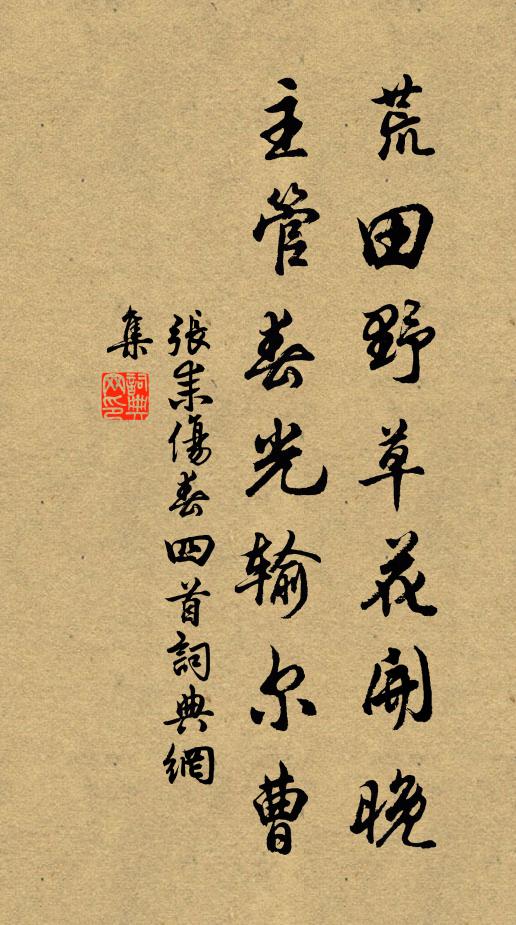 荒田野草花开晚
主管春光输尔曹
張耒傷春四首詞典網
集
詞典網印